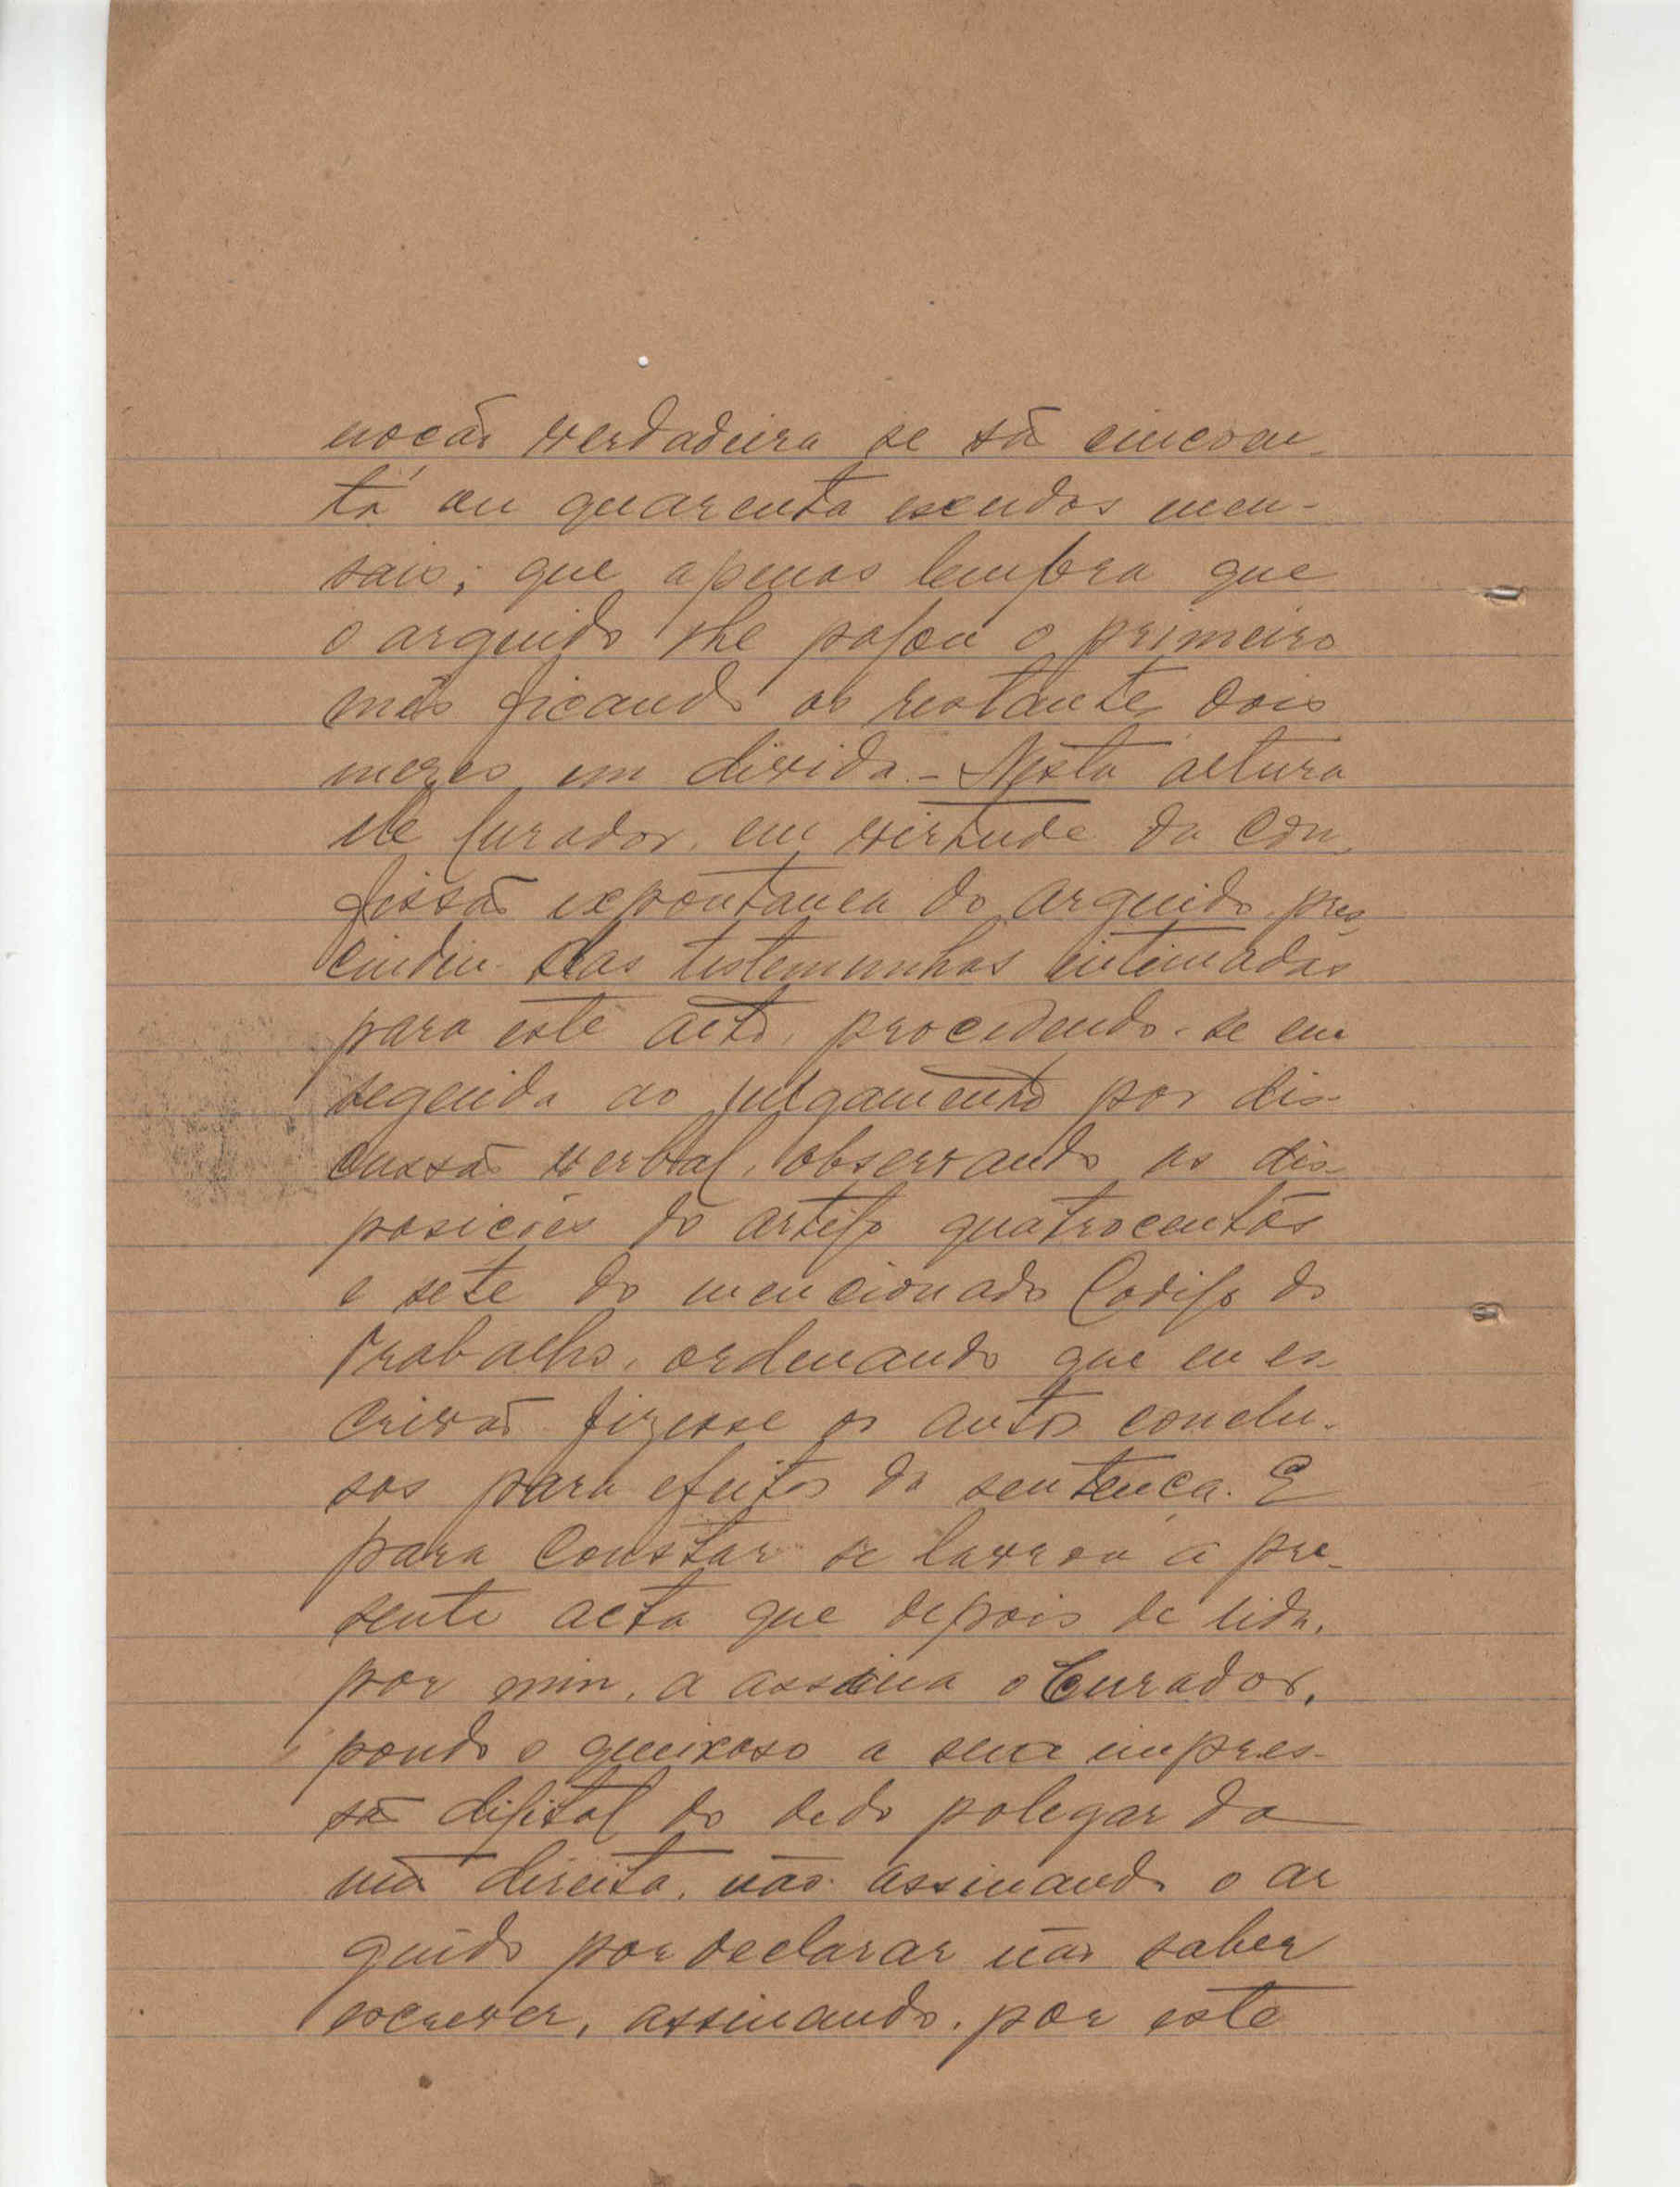 noção verdadeira se são cincoen-
ta ou quarenta escudos men-
sais; que apenas lembra que
o arguido lhe pagou o primeiro
mês ficando os restantes dois
mezes em divida. - Nesta altura
ele Curador, em virtude da con-
fissão expontanea do arguido pres-
cindiu das testemunhas intimadas
para este acto, procedendo-se em
seguida ao julgamento por dis-
cussão verbal, observando as dis-
posições do artigo quatrocentos
e sete do mencionado Codigo do
Trabalho, ordenando que eu es-
crivão fizesse os autos conclu-
sos para efeitos da sentença. E
para constar se lavrou a pre-
sente acta que depois de lida,
por mim, a assina o Curador,
pondo o queixoso a sua impres-
são digital do dedo polegar da
mão direita, não assinando o ar
guido por declarar não saber
escrever, assinando, por este